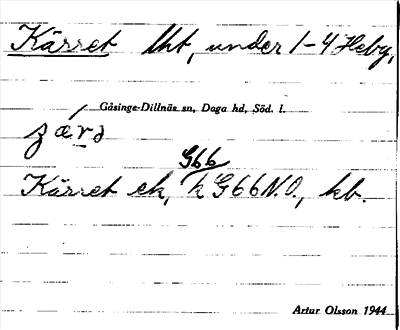 Kärret lht, under 1-4 Heby,
Gåsinge-Dillnäs sn, Daga hd, Söd. l.
Kärret ek, k G66 N.O., kb.
G66
Artur Olsson 1944